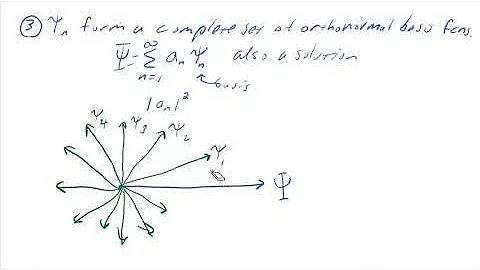 ③ Ψn form a complete set of orthonormal basis fcns.
Ψ = ∞∑n=1 an Ψn also a solution
basis
|an|²
Ψ4 Ψ3 Ψ2
Ψ1
Ψ